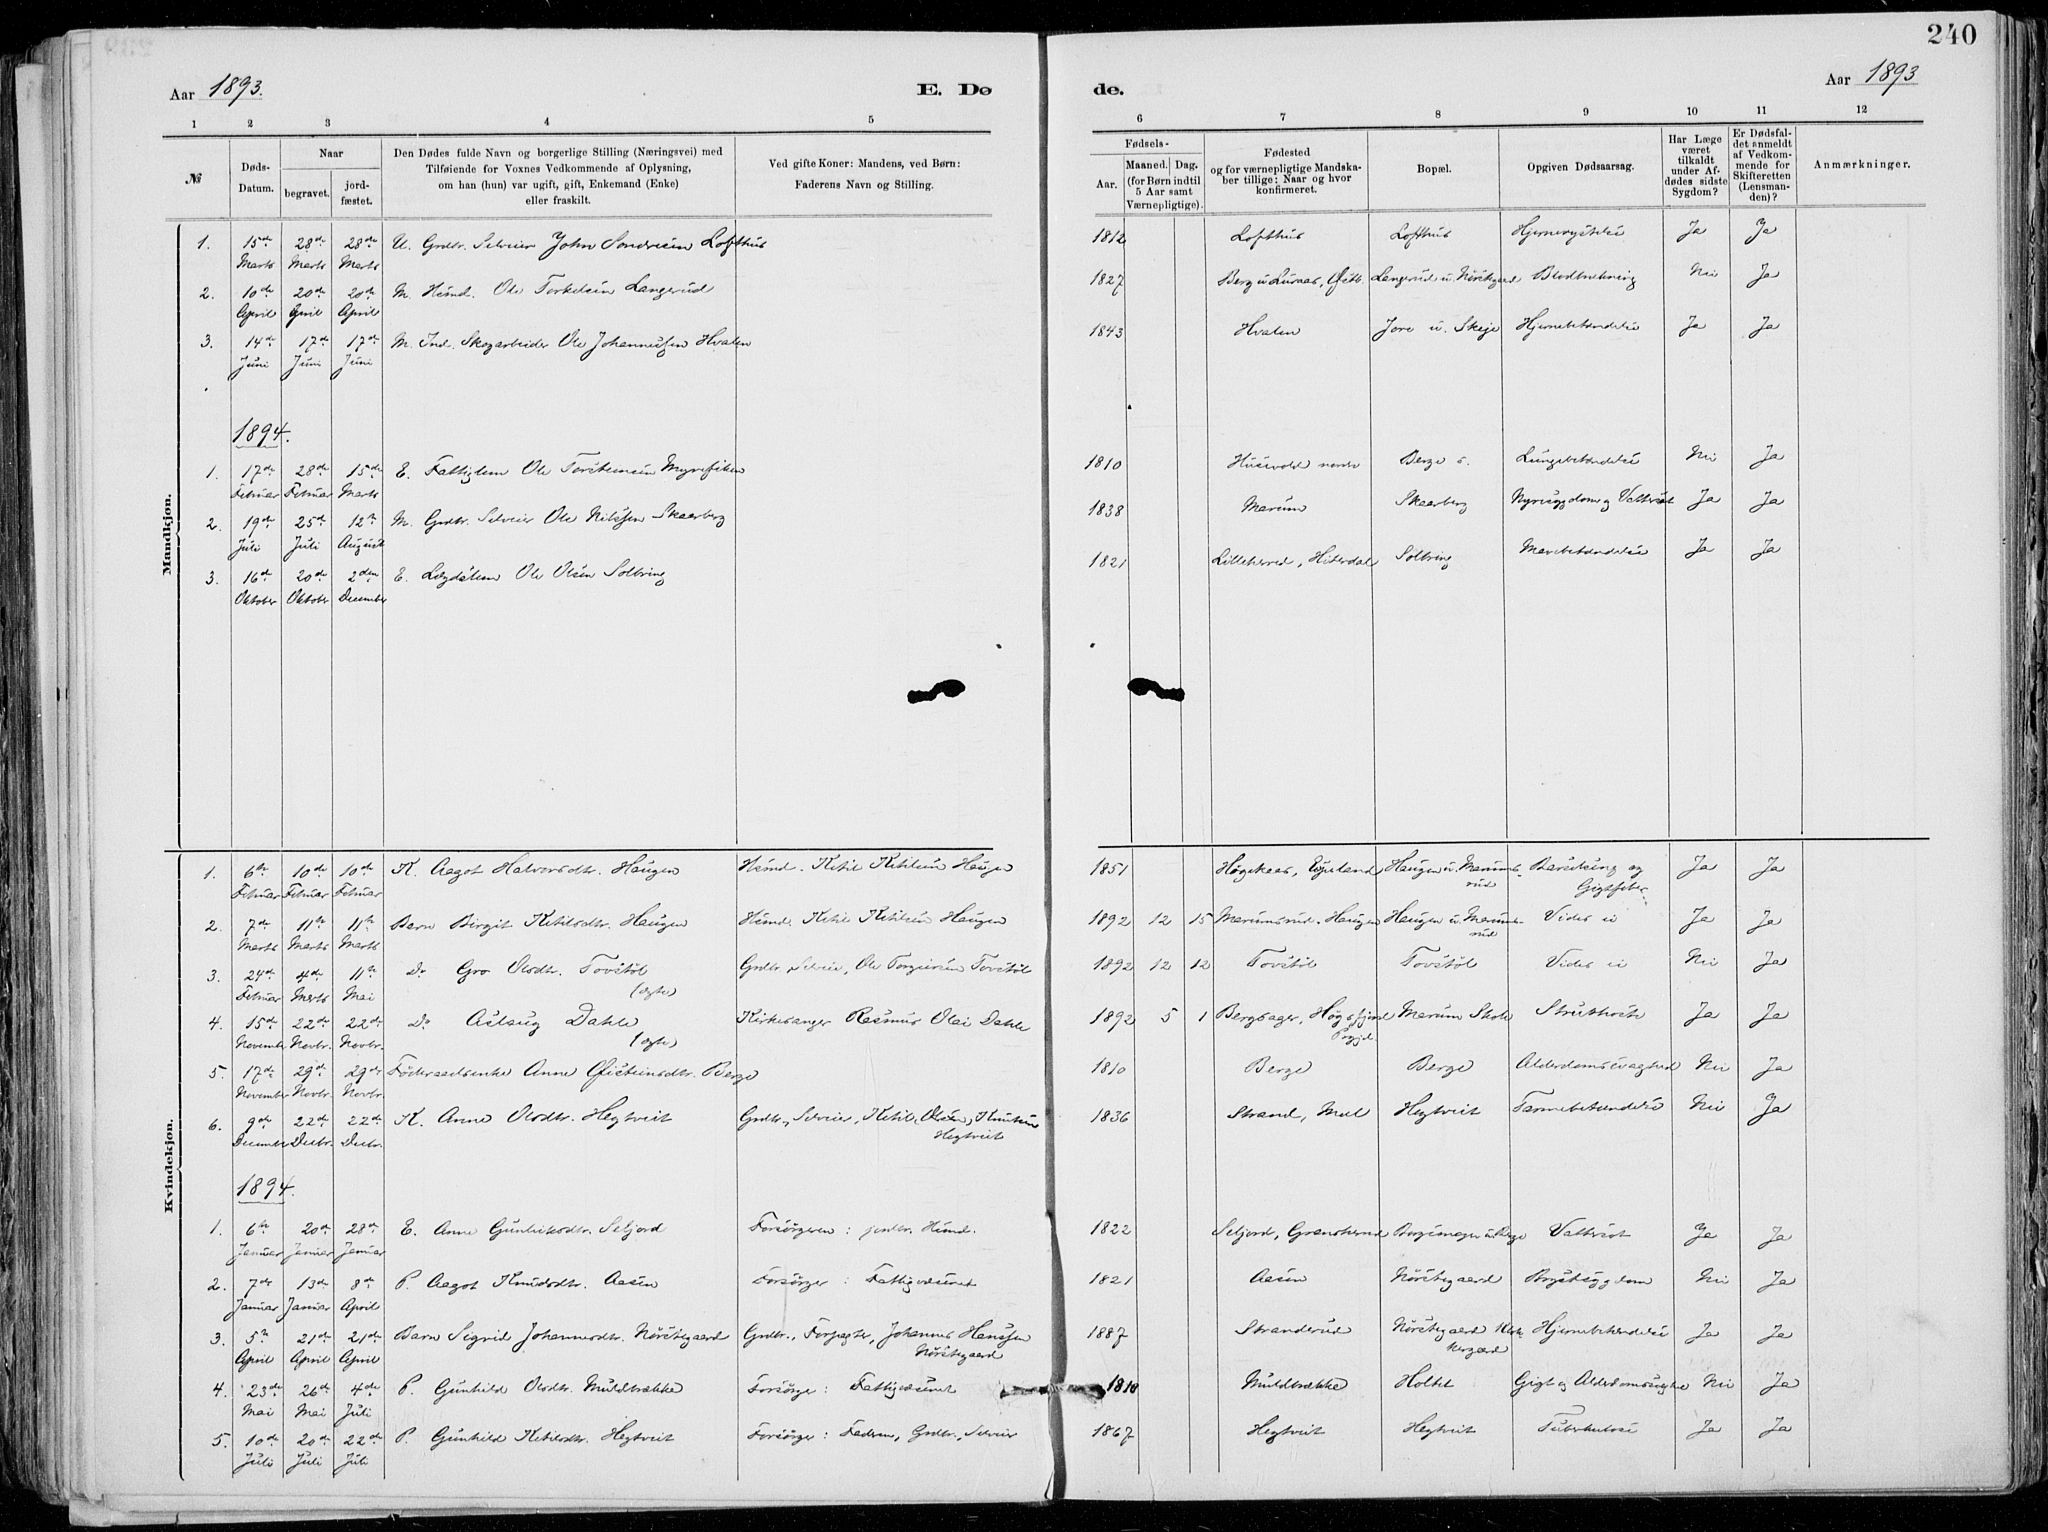 240
Aar 1893.
E. Dø
de.
Aar 1893
1 2 3 4 5
6 7 8 9 10 11 12
№
Døds-Datum.
Naar
begravet.
jord-fæstet.
Den Dødes fulde Navn og borgerlige Stilling (Næringsvei) med
Tilføiende for Voxnes Vedkommende af Oplysning,
om han (hun) var ugift, gift, Enkemand (Enke)
eller fraskilt.
Ved gifte Koner: Mandens, ved Børn:
Faderens Navn og Stilling.
Fødsels-
Aar.
Maaned. Dag.
(for Børn indtil
5 Aar samt
Værnepligtige).
Fødested
og for værnepligtige Mandska-
ber tillige: Naar og hvor
konfirmeret.
Bopæl.
Opgiven Dødsaarsag.
Har Læge
været
tilkaldt
under Af-
dødes sidste
Sygdom?
Er Dødsfal-
det anmeldt
af Vedkom-
mende for
Skifteretten
(Lensman-
den)?
Anmærkninger.
Mandkjøn.
1. 15de Marts 28de Marts 28de Marts U. Grdbr. Selveier John Sondresen Lofthus 1812 Lofthus Lofthus Hjernerystelse Ja Ja
2. 10de April 20de April 20de April M. Husmd. Ole Torkelsen Langerud 1827 Berg u. Luraas, Langerud u. Nørstegaard Blodbrækning Nei Ja
3. 14de Juni 17de Juni 17de Juni M. Ind. Skogarbeider Ole Johannessen Hvalen 1843 Hvalen Jore u. Skeje Hjernebetændelse Ja Ja
1894.
1. 17de Februar 28de Februar 15de Marts E. Fattiglem Ole Torstensen 1810 Husevold nordre Berge s. Lungebetændelse Nei Ja
2. 19de Juli 25de Juli 12te August M. Grdbr. Selveier Ole Nilssen Skaarberg 1838 Marum Skaarberg Nyresygdom og Vattersot Ja Ja
3. 16de Oktober 20de Oktober 2den December E. Lægdslem Ole Olsen Solbring 1821 Lilleherred, Hiterdal Solbring Mavebetændelse Ja Ja
Kvindekjøn.
1. 6te Februar 10de Februar 10de Februar K. Aagot Halvorsdtr. Haugen Husmd. Ketil Ketilsen Haugen 1851 Høgekaas, Haugen u. Marumsrud Barselseng og Gigtfeber Ja Ja
2. 7de Marts 11te Marts 11te Marts Barn Birgit Ketilsdtr. Haugen Husmd. Ketil Ketilsen Haugen 1892 12 15 Marumsrud, Haugen Haugen u. Marumsrud Vides ei Ja Ja
3. 24de Februar 4de Marts 11te Mai Do Gro Olsdtr. Tovstøl (ægte) Grdbr. Selveier, Ole Torgeirsen Tovstøl 1892 12 12 Tovstøl Tovstøl Vides ei Nei Ja
4. 15de November 22de Novbr. 22de Novbr. Do Aslaug Dahle (ægte) Kirkesanger Rasmus Olai Dahle 1892 5 1 Bergsager, Høgsfjord Prgjd. Marum Skole Strubehoste Ja Ja
5. 17de November 29de Novbr. 29de Novbr. Føderaadsenke Anne Øisteinsdtr. Berge 1810 Berge Berge Alderdomssvaghed Nei Ja
6. 9de December 22de Decbr. 22de Decbr. K. Anne Olsdtr. Hegtveit Grdbr., Selveier, Ketil Olsen, Knutsen Hegtveit 1836 Strand, Mæl Hegtveit Tarmebetændelse Nei Ja
1894.
1. 6te Januar 20de Januar 28de Januar E. Anne Gunleiksdtr. Seljord Forsørgeren: jordbr. Husmd. 1822 Seljord, Grønsherred Vattersot Ja Ja
2. 7de Januar 13de Januar 8de April P. Aagot Knudsdtr. Aasen Forsørger: Fattigvæsenet 1821 Aasen Nørstegaard Brystsygdom Nei Ja
3. 5te April 21de April 21de April Barn Sigrid Johannesdtr. Nørstegaard Grdbr., Forpagter, Johannes Hanssen Nørstegaard 1887 Stranderud Nørstegaard Hjernebetændelse Ja Ja
4. 23de Mai 26de Mai 4de Juli P. Gunhild Olsdtr. Muldbrække Forsørge: Fattigvæsenet 1810 Muldbrække Holtet Gigt og Alderdomssvaghe Nei Ja
5. 10de Juli 20de Juli 22de Juli P. Gunhild Ketilsdtr. Hegtveit Forsørger: Faderen, Grdbr., Selveier 1867 Hegtveit Hegtveit Tuberkulose Ja Ja